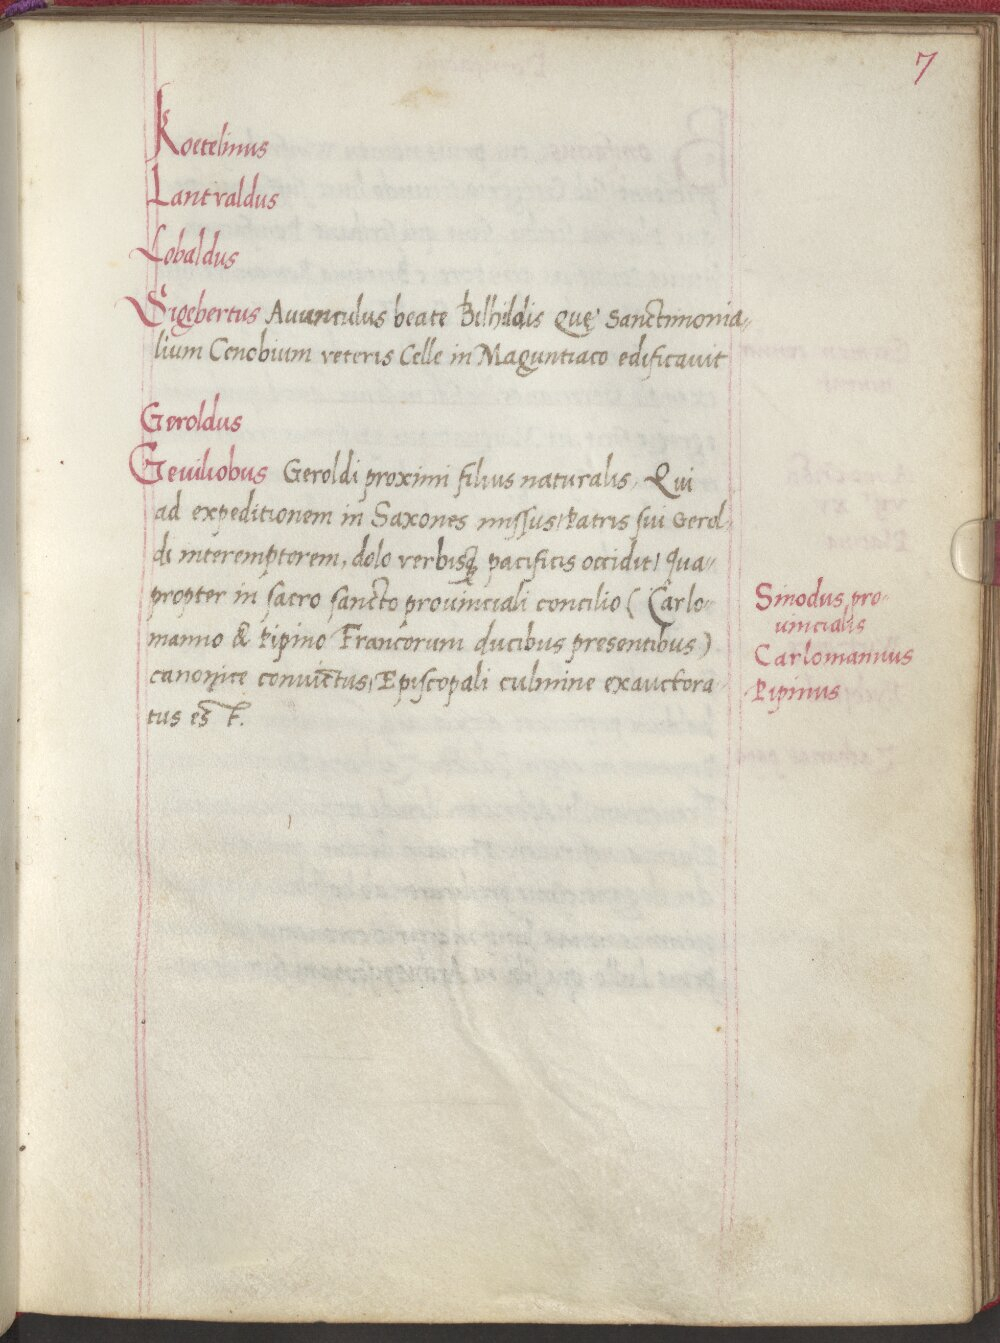 7
Koetelinus
Lantvaldus
Lobaldus
Sigebertus Auunculus beate Bilhildis Quę Sanctimonia-
lium Cenobium veteris Celle in Maguntiaco edificauit
Geroldus
Geuiliobus Geroldi proximi filius naturalis. Qui
ad expeditionem in Saxones missus/ Patris sui Gerol-
di interemptorem, dolo verbisq pacificis occidit/ Qua-
propter in sacro sancto prouinciali concilio (Carlo-
manno & Pipino Francorum ducibus presentibus)
canonice conuictus/ Episcopali culmine exauctora
tus est.
Sinodus pro-
uincialis
Carlomannus
Pipinus